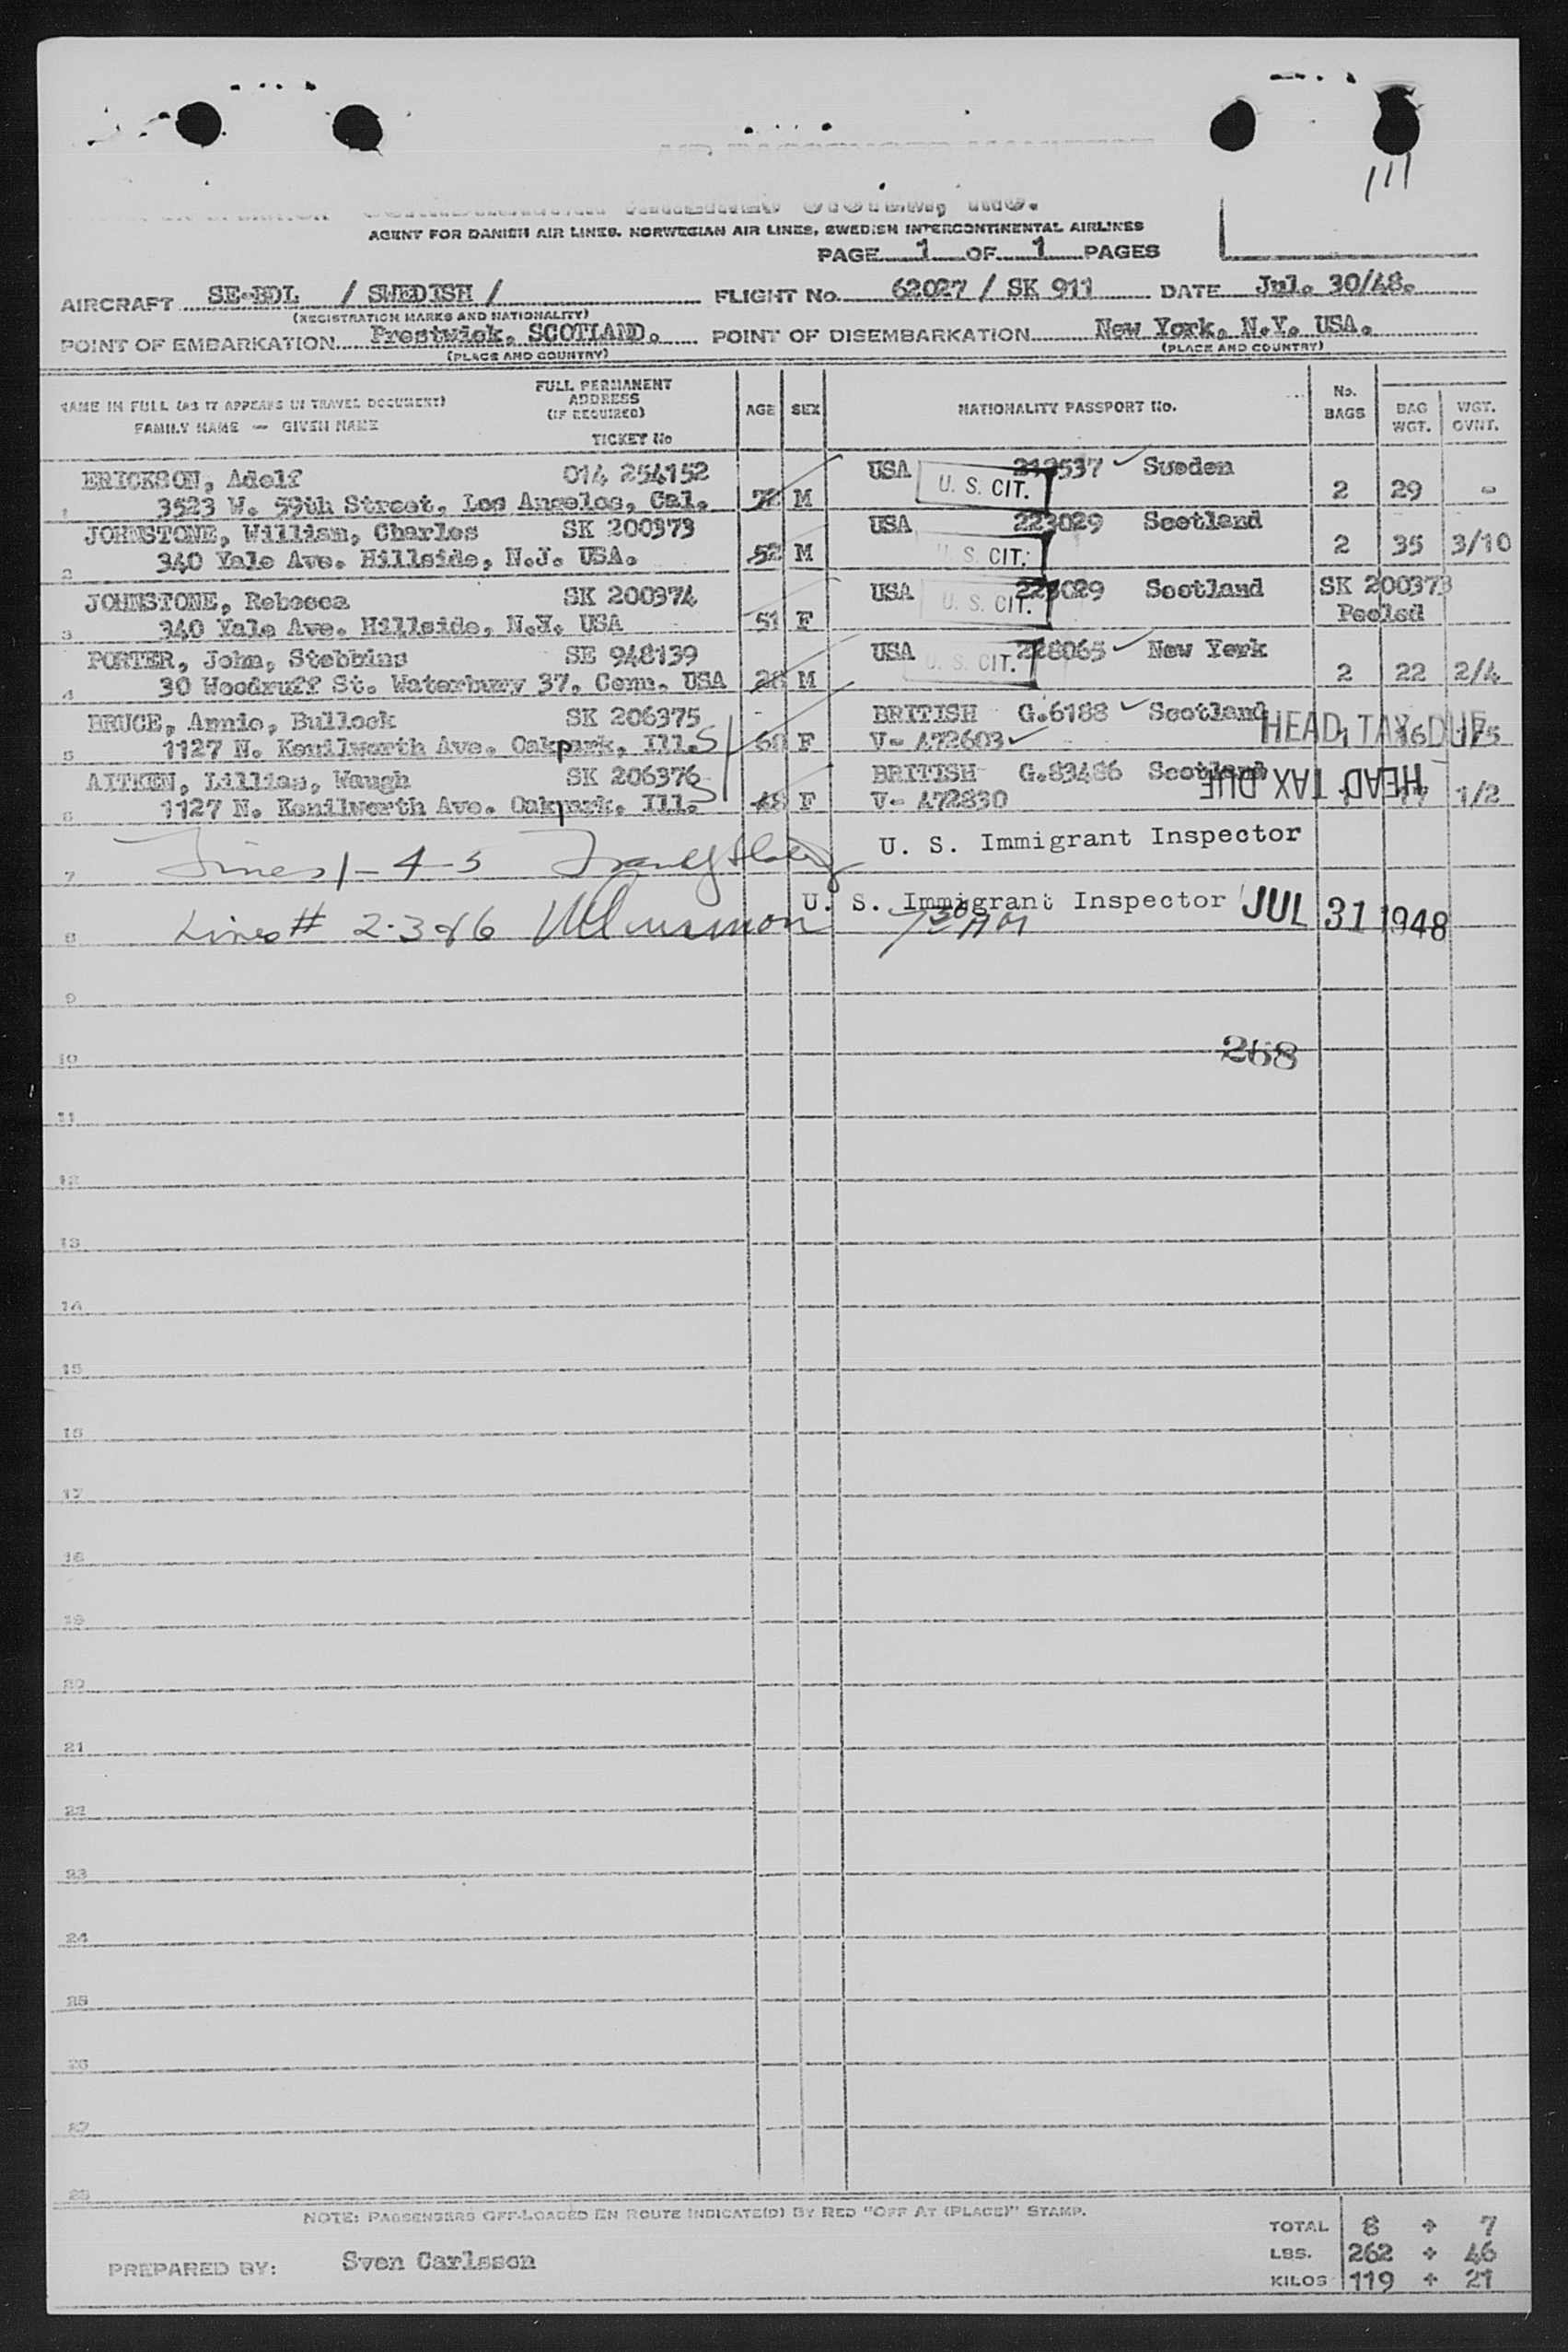 111
AGENT FOR DANISH AIR LINES, NORWEGIAN AIR LINES, SWEDISH INTERCONTINENTAL AIRLINES
PAGE 1 OF 1 PAGES
AIRCRAFT SE-BDL / SWEDISH / FLIGHT No. 62027 / SK 911 DATE Jul. 30/48.
(REGISTRATION MARKS AND NATIONALITY)
POINT OF EMBARKATION Prestwick, SCOTLAND. POINT OF DISEMBARKATION New York, N.Y. USA.
(PLACE AND COUNTRY) (PLACE AND COUNTRY)
NAME IN FULL (AS IT APPEARS IN TRAVEL DOCUMENT)
FAMILY NAME — GIVEN NAME
FULL PERMANENT
ADDRESS
(IF REQUIRED)
TICKET No
AGE SEX NATIONALITY PASSPORT No. No. BAGS BAG WGT. WGT. OVNT.
ERICKSON, Adolf 014 254152 USA 213537 Sweden
U. S. CIT.
1 3523 W. 59th Street, Los Angelos, Cal. 72 M 2 29 -
JOHNSTONE, William, Charles SK 200373 USA 223029 Scotland
U. S. CIT.
2 340 Yale Ave. Hillside, N.J. USA. 52 M 2 35 3/10
JOHNSTONE, Rebecca SK 200374 USA 223029 Scotland SK 200373
U. S. CIT.
3 340 Yale Ave. Hillside, N.Y. USA 51 F Pooled
PORTER, John, Stebbins SE 948139 USA 228065 New York
U. S. CIT.
4 30 Woodruff St. Waterbury 37, Conn. USA 28 M 2 22 2/4
BRUCE, Annie, Bullock SK 206375 BRITISH G.6188 Scotland
HEAD TAX DUE
5 1127 N. Kenilworth Ave. Oakpark, Ill. F V- A72603 1 16 1/5
AITKEN, Lillias, Waugh SK 206376 BRITISH G.83486 Scotland
HEAD TAX DUE
6 1127 N. Kenilworth Ave. Oakpark, Ill. 48 F V- A72830 1 17 1/2
U. S. Immigrant Inspector
7 Lines 1-4-5
U. S. Immigrant Inspector JUL 31 1948
8 Lines # 2.3 & 6
9
10 268
11
12
13
14
15
16
17
18
19
20
21
22
23
24
25
26
27
28
NOTE: PASSENGERS OFF-LOADED EN ROUTE INDICATE(D) BY RED "OFF AT (PLACE)" STAMP.
TOTAL 8 + 7
LBS. 262 + 46
PREPARED BY: Sven Carlsson
KILOS 119 + 21